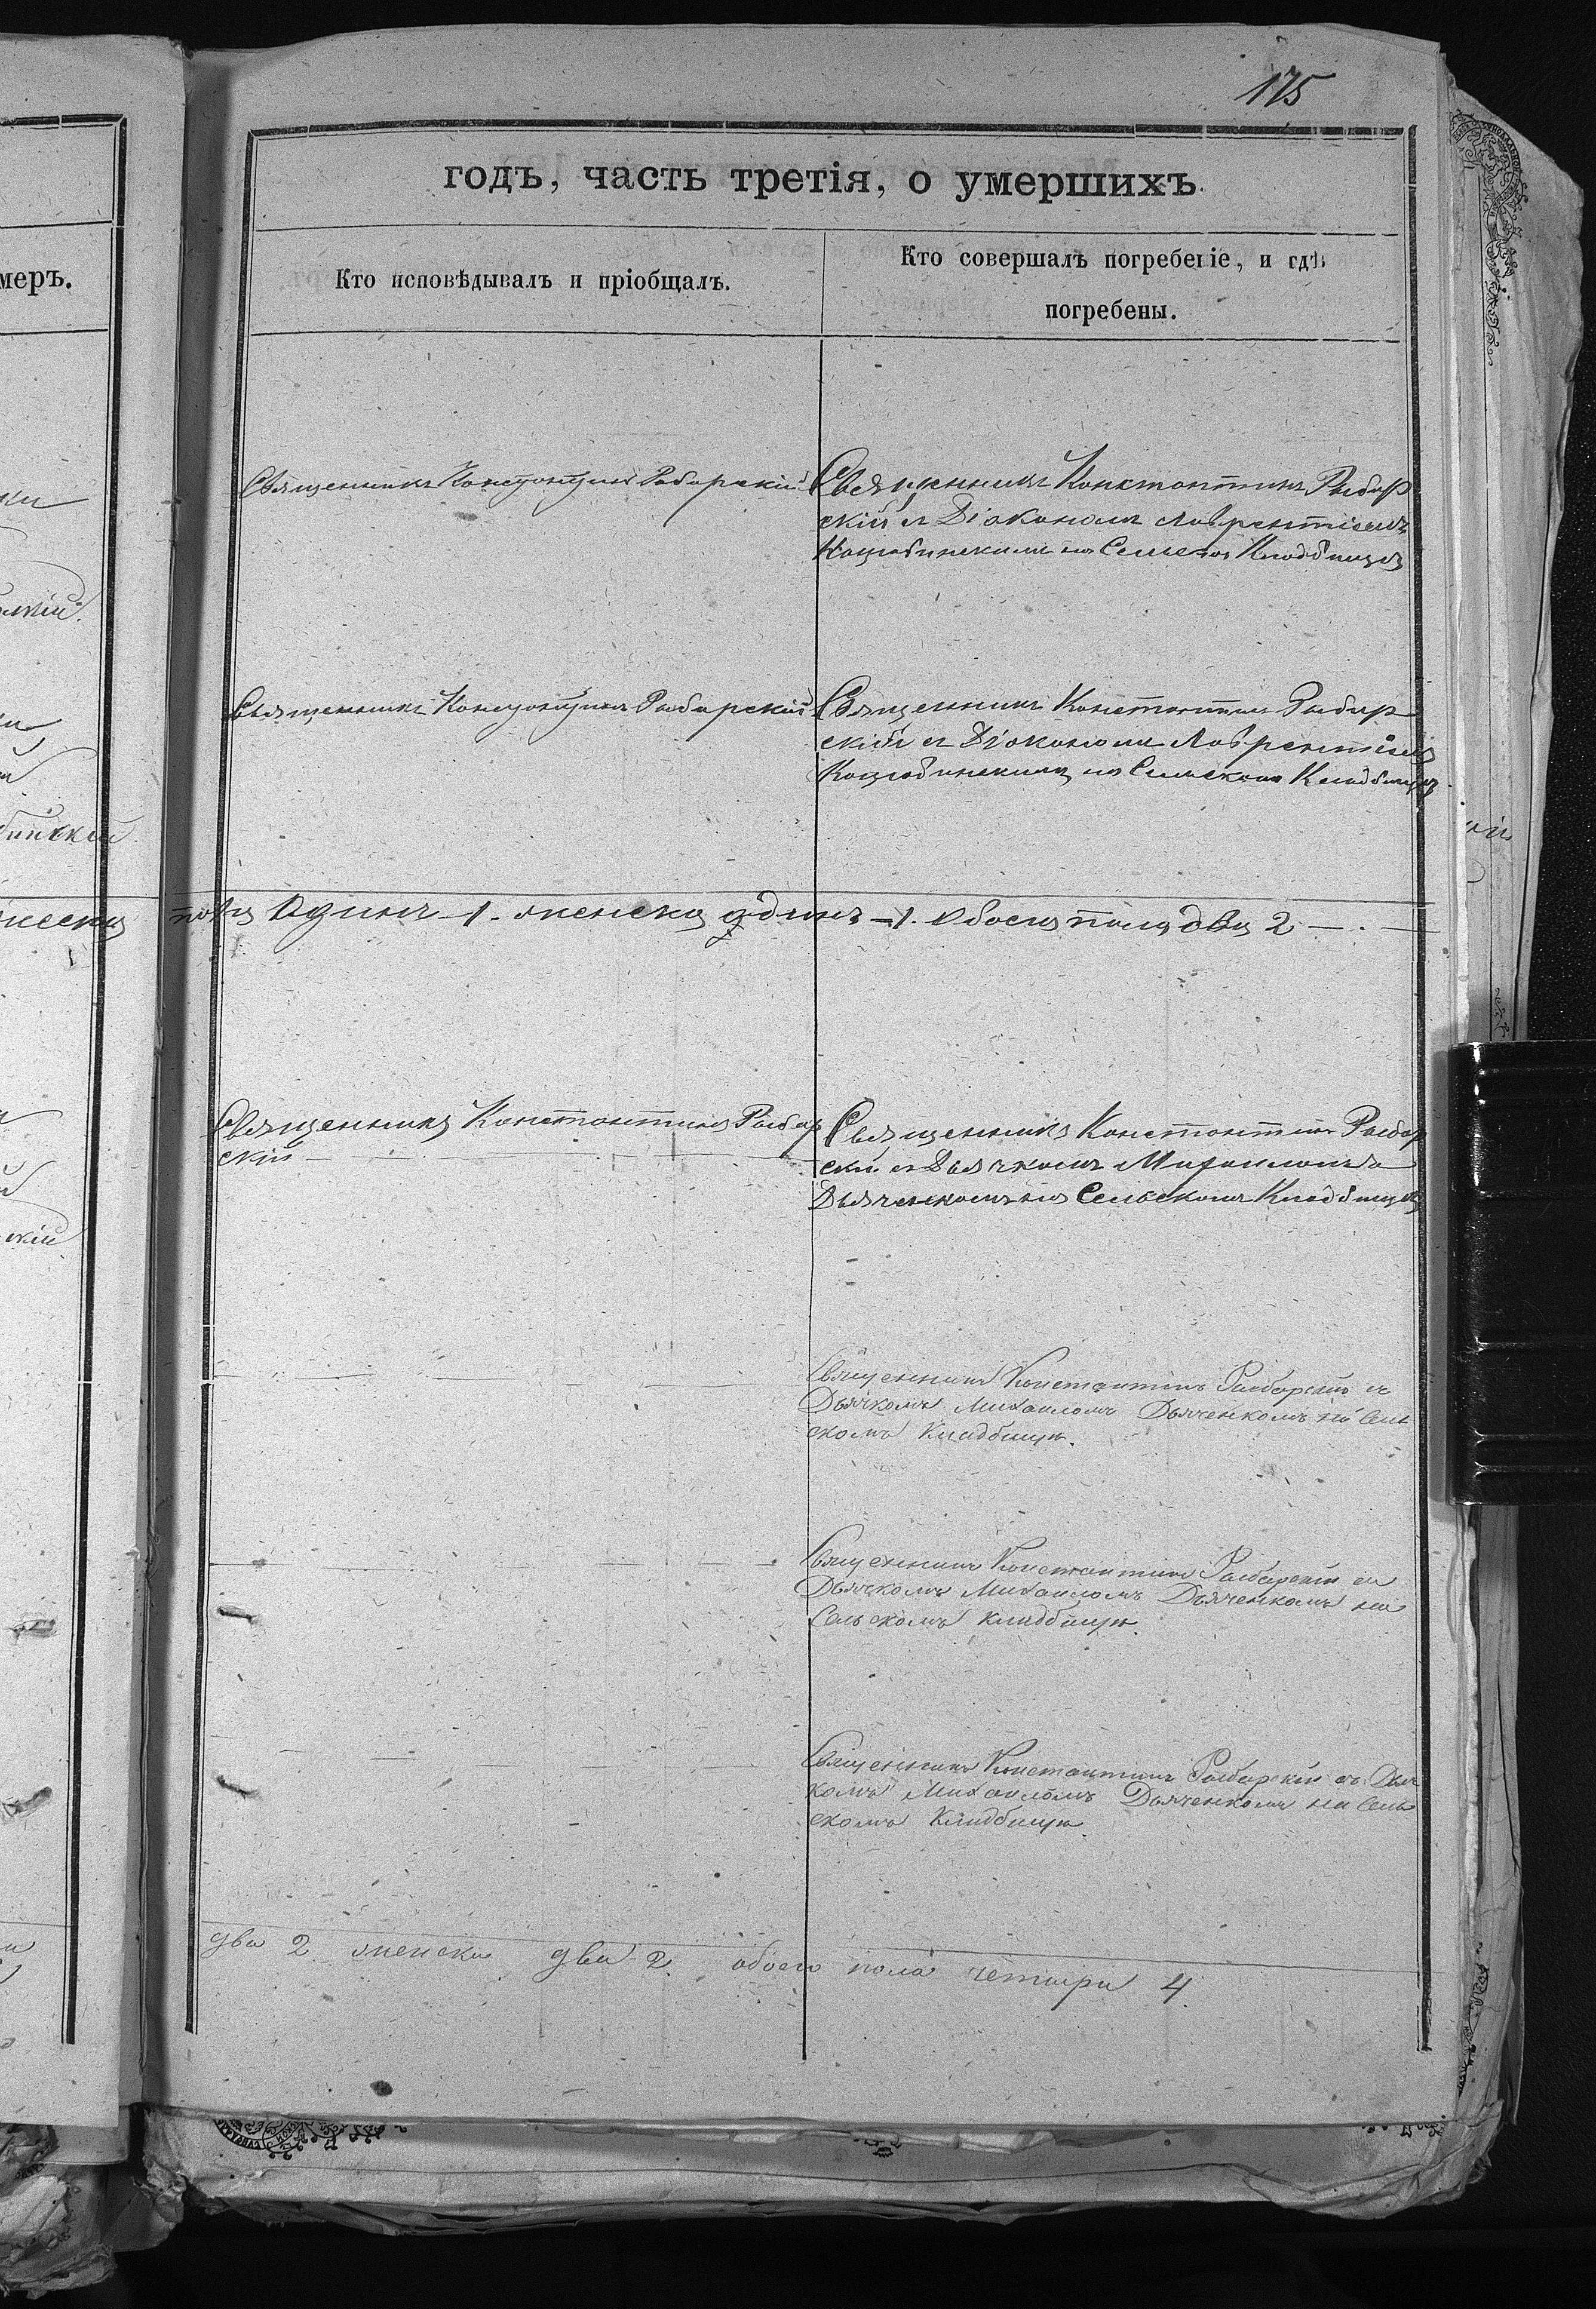 175
годъ, часть третія, о умершихъ
меръ.
Кто исповѣдывалъ и пріобщалъ.
Кто совершалъ погребеніе, и гдѣ
погребены.
Священникъ Константинъ Рыбарскій
Священникъ Константинъ Рыбар
скій съ Діакономъ Лаврентіемъ
Коцюбинскимъ на Кладбищѣ
Священникъ Константинъ Рыбарскій
Священникъ Константинъ Рыбар
скій съ Діакономъ Лаврентіемъ
Коцюбинскимъ на Сельскомъ Кладбищѣ
пола Одинъ 1. женска одинъ 1. Обоего пола два 2
Священникъ Константинъ Рыбар
скій
Священникъ Константинъ Рыбар
скій съ Дьячкомъ Михаиломъ
Дьяченкомъ на Сельскомъ Кладбищѣ
Священникъ Константинъ Рыбарскій съ
Дьячкомъ Михаиломъ Дьяченкомъ на Сель
скомъ Кладбищѣ.
Священникъ Константинъ Рыбарскій съ
Дьячкомъ Михаиломъ Дьяченкомъ на
Сельскомъ кладбищѣ.
Священникъ Константинъ Рыбарскій съ Дьяч
комъ Михаиломъ Дьяченкомъ на Сель
скомъ Кладбищѣ.
два 2 женска два 2. обоего пола четыри 4.